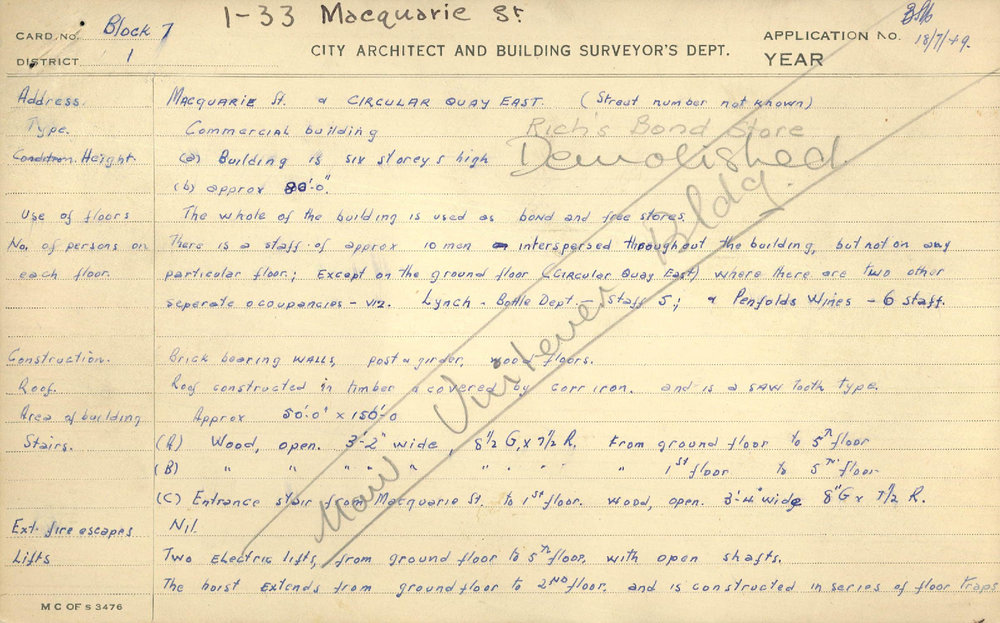 1-33 Macquarie St.
CARD. No. Block 7
DISTRICT 1
CITY ARCHITECT AND BUILDING SURVEYOR'S DEPT.
APPLICATION No.
18/7/49.
YEAR
Address. Macquarie St. & Circular Quay East. (Street number not known)
Type. Commercial building Rich's Bond Store
Condition. Height. (a) Building is six storeys high Demolished.
(b) approx 80'-0".
Use of floors The whole of the building is used as bond and free stores.
No. of persons on There is a staff of approx 10 men interspersed throughout the building, but not on any
each floor. particular floor; Except on the ground floor (Circular Quay East) where there are two other
seperate occupancies - viz. Lynch - Bottle Dept. - Staff 5; & Penfolds Wines - 6 staff.
Construction. Brick bearing walls, post & girder, wood floors.
Roof. Roof constructed in timber & covered by corr iron. and is a saw tooth type.
Area of building Approx 50'-0" x 150'-0
Stairs. (A) Wood, open. 3'-2" wide, 8½ G. x 7½ R. From ground floor to 5th floor
(B) " " " " " " " " " " 1st floor to 5th floor
(C) Entrance stair from Macquarie St. to 1st floor. Wood, open. 3'-4" wide 8"G x 7½ R.
Ext. fire escapes Nil.
Lifts Two Electric lifts, from ground floor to 5th floor. with open shafts.
The hoist Extends from ground floor to 2nd floor. and is constructed in series of floor traps
Now Unilever Bldg.
M C OF S 3476